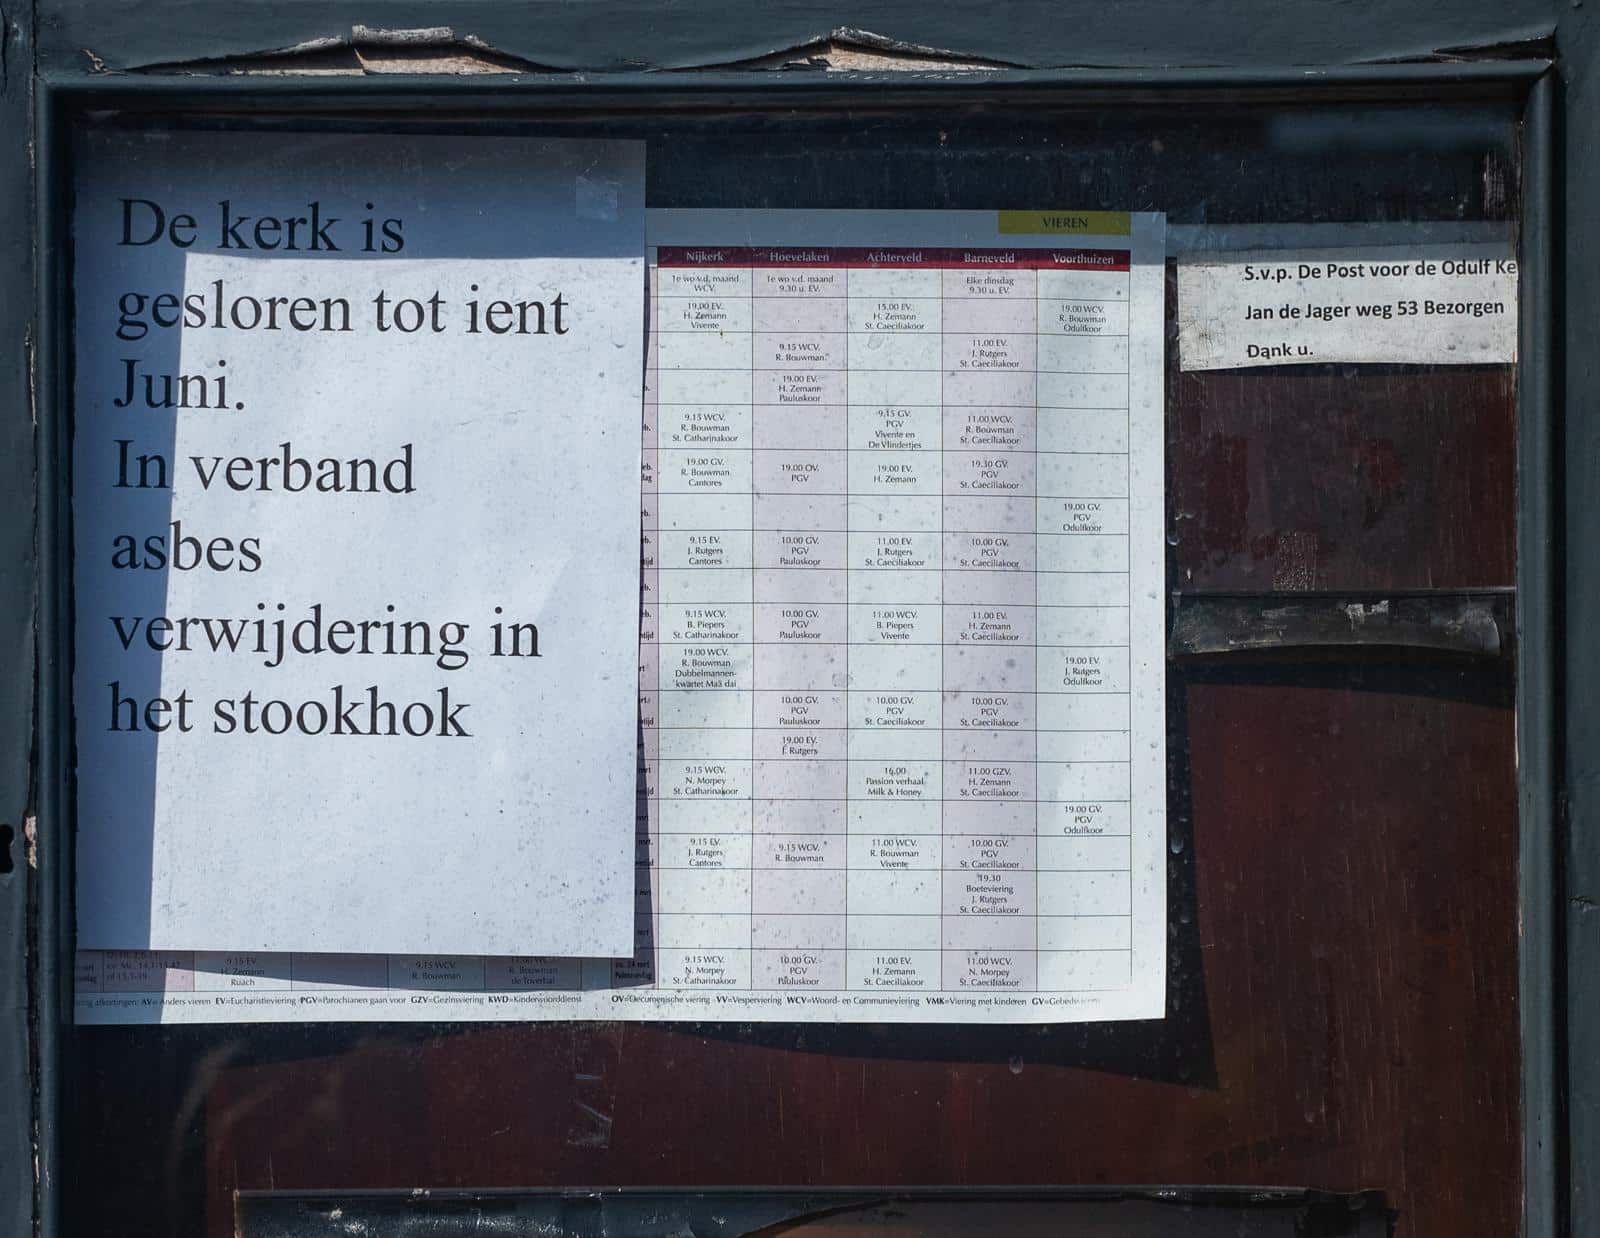 De kerk is
gesloren tot ient
Juni.
In verband
asbes
verwijdering in
het stookhok
VIEREN
Nijkerk Hoevelaken Achterveld Barneveld Voorthuizen
1e wo v.d. maand 1e wo v.d. maand Elke dinsdag
WCV. 9.30 u. EV. 9.30 u. EV.
19.00 EV. 15.00 EV. 19.00 WCV.
H. Zemann H. Zemann R. Bouwman
Vivente St. Caeciliakoor Odulfkoor
9.15 WCV. 11.00 EV.
R. Bouwman J. Rutgers
St. Caeciliakoor
19.00 EV.
H. Zemann
Pauluskoor
9.15 WCV. 9.15 GV. 11.00 WCV.
R. Bouwman PGV R. Bouwman
St. Catharinakoor Vivente en St. Caeciliakoor
De Vlindertjes
19.00 GV. 19.00 OV. 19.00 EV. 19.30 GV.
R. Bouwman PGV H. Zemann PGV
Cantores St. Caeciliakoor
19.00 GV.
PGV
Odulfkoor
9.15 EV. 10.00 GV. 11.00 EV. 10.00 GV.
J. Rutgers PGV J. Rutgers PGV
Cantores Pauluskoor St. Caeciliakoor St. Caeciliakoor
9.15 WCV. 10.00 GV. 11.00 WCV. 11.00 EV.
B. Piepers PGV B. Piepers H. Zemann
St. Catharinakoor Pauluskoor Vivente St. Caeciliakoor
19.00 WCV. 19.00 EV.
R. Bouwman J. Rutgers
Dubbelmannen- Odulfkoor
kwartet Maä dai
10.00 GV. 10.00 GV. 10.00 GV.
PGV PGV PGV
Pauluskoor St. Caeciliakoor St. Caeciliakoor
19.00 EV.
J. Rutgers
9.15 WCV. 16.00 11.00 GZV.
N. Morpey Passion verhaal H. Zemann
St. Catharinakoor Milk & Honey St. Caeciliakoor
19.00 GV.
PGV
Odulfkoor
9.15 EV. 9.15 WCV. 11.00 WCV. 10.00 GV.
J. Rutgers R. Bouwman R. Bouwman PGV
Cantores Vivente St. Caeciliakoor
19.30
Boeteviering
J. Rutgers
St. Caeciliakoor
9.15 WCV. 10.00 GV. 11.00 EV. 11.00 WCV.
N. Morpey PGV H. Zemann N. Morpey
St. Catharinakoor Pauluskoor St. Caeciliakoor St. Caeciliakoor
9.15 EV. 9.15 WCV.
H. Zemann R. Bouwman R. Bouwman
Ruach de Toverhal
afkortingen: AV=Anders vieren EV=Eucharistieviering PGV=Parochianen gaan voor GZV=Gezinsviering KWD=Kinderwoorddienst OV=Oecumenische viering VV=Vesperviering WCV=Woord- en Communieviering VMK=Viering met kinderen
S.v.p. De Post voor de Odulf Ke
Jan de Jager weg 53 Bezorgen
Dank u.